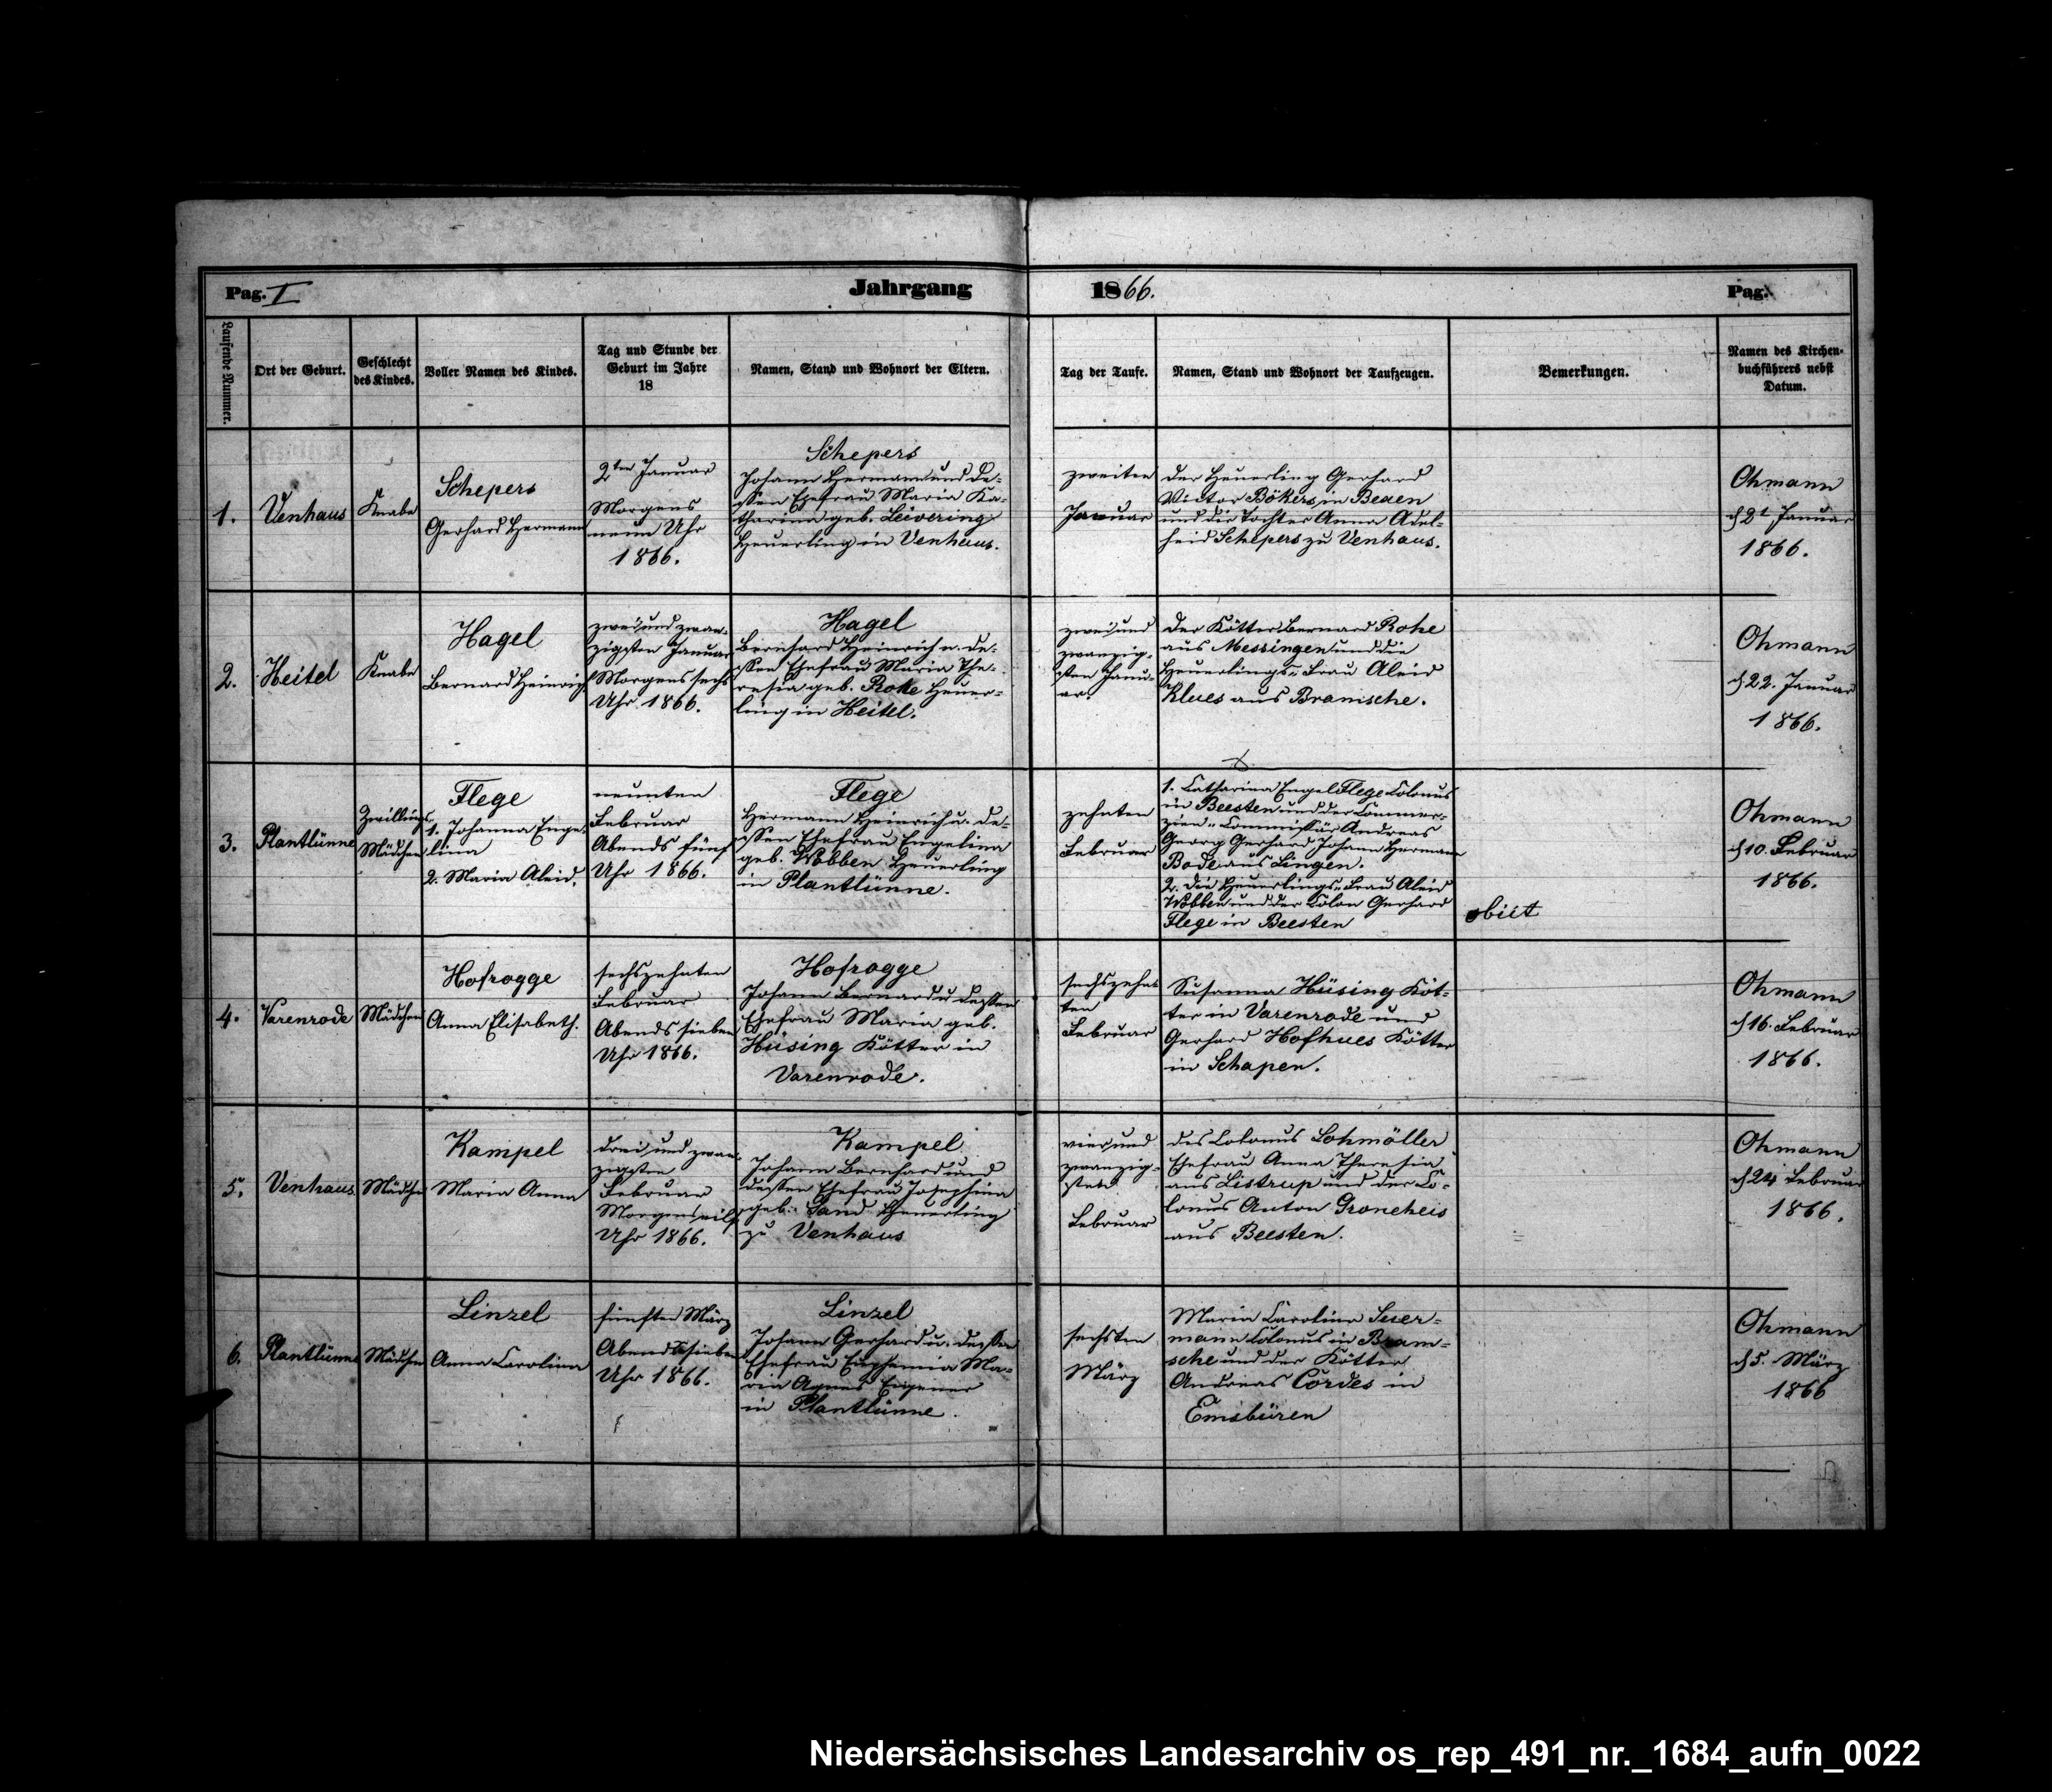 Pag. I
Jahrgang
1866.
Pag.
Laufende Nummer.
Ort der Geburt.
Geschlecht
des Kindes.
Voller Namen des Kindes.
Tag und Stunde der
Geburt im Jahre
18
Namen, Stand und Wohnort der Eltern.
Tag der Taufe.
Namen, Stand und Wohnort der Taufzeugen.
Bemerkungen.
Namen des Kirchen-
buchführers nebst
Datum.
1.
Venhaus
Knabe
Schepers
Gerhard Hermann
2ten Januar
Morgens
neun Uhr
1866.
Schepers
Johann Hermann und de-
ssen Ehefrau Maria Ka-
tharina geb. Leivering
Heuerling in Venhaus.
zweiten
Januar
der Heuerling Gerhard
Victor Bökers in Beaen
und die Tochter Anna Adel-
heid Schepers zu Venhaus.
Ohmann
d 2t Januar
1866.
2.
Heitel
Knabe
Hagel
Bernard Heinrich
zwei und zwan-
zigsten Januar
Morgens sechs
Uhr 1866.
Hagel
Bernhard Heinrich u. de-
ssen Ehefrau Maria The-
resia geb. Rohe Heuer-
ling in Heitel.
zwei und
zwanzig-
sten Janu-
ar.
der Kötter Bernard Rohe
aus Messingen und die
Heuerlings-Frau Aleid
Klues aus Bramsche.
Ohmann
d 22. Januar
1866.
3.
Plantlünne
Zwillinge
Mädchen
Flege
1. Johanna Enge-
lina
2. Maria Aleid.
neunten
Februar
Abends fünf
Uhr 1866.
Flege
Hermann Heinrich u. de-
ssen Ehefrau Engelina
geb. Wobben Heuerling
in Plantlünne.
zehnten
Februar
1. Catharina Engel Flege Colonus
in Beesten und der Commer-
zien-Commissär Andreas
Georg Gerhard Johann Hermann
Bode aus Lingen.
2. die Heuerlings-Frau Aleid
Wobben und der Colon Gerhard
Flege in Beesten
obiit
Ohmann
d 10. Februar
1866.
4.
Varenrode
Mädchen
Hofrogge
Anna Elisabeth.
sechszehnten
Februar
Abends sieben
Uhr 1866.
Hofrogge
Johann Bernard u. dessen
Ehefrau Maria geb.
Hüsing Kötter in
Varenrode.
sechszehn
ten
Februar
Susanna Hüsing Köt-
ter in Varenrode und
Gerhard Hofhues Kötter
in Schapen.
Ohmann
d 16. Februar
1866.
5.
Venhaus
Mädchen
Kampel
Maria Anna
drei und zwan-
zigsten
Februar
Morgens eilf
Uhr 1866.
Kampel
Johann Bernhard und
dessen Ehefrau Josephina
geb. Sand Heuerling
zu Venhaus
vier und
zwanzig-
sten
Februar
des Colonus Lohmöller
Ehefrau Anna Theresia
aus Listrup und der Co-
lonus Anton Groneheis
aus Beesten.
Ohmann
d 24 Februar
1866.
6.
Plantlünne
Mädchen
Linzel
Anna Carolina
fünften März
Abends sieben
Uhr 1866.
Linzel
Johann Gerhard u. dessen
Ehefrau Euphemia Ma-
ria Agnes
in Plantlünne.
sechsten
März
Maria Carolina
mann Colonus in Bram-
sche und der Kötter
Andreas Cordes in
Emsbüren
Ohmann
d 5. März
1866
Niedersächsisches Landesarchiv os_rep_491_nr._1684_aufn_0022